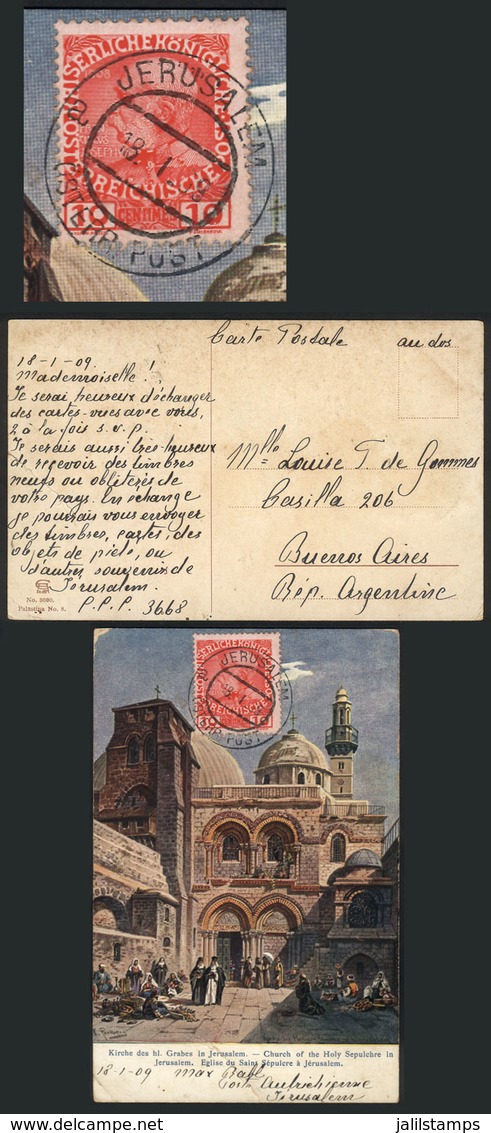 KAISERLICHE KÖNIGL
ÖSTERREICHISCHE POST
JERUSALEM
18.I.09
ÖSTERR. POST
10 CENTIMES 10
Carte Postale au dos
18-1-09
Mademoiselle !
Je serai heureux d'échanger
des cartes-vues avec vous,
2 à la fois s.v.p.
Je serais aussi très heureux
de recevoir des timbres
neufs ou oblitérés de
votre pays. En échange
je pourrais vous envoyer
des timbres, cartes, des
objets de piété, ou
d'autres souvenirs de
Jérusalem.
P.P.P. 3668
No. 3690.
Palästina No. 8.
Mlle Louise T. de Gommes
Casilla 206
Buenos Aires
Rép. Argentine
JERUSALEM
18.I.09
ÖSTERR. POST
10 10
Kirche des hl. Grabes in Jerusalem. — Church of the Holy Sepulchre in
Jerusalem. Eglise du Saint Sépulcre à Jérusalem.
18-1-09 Max
Poste Autrichienne
Jérusalem
www.delcampe.net jalilstamps